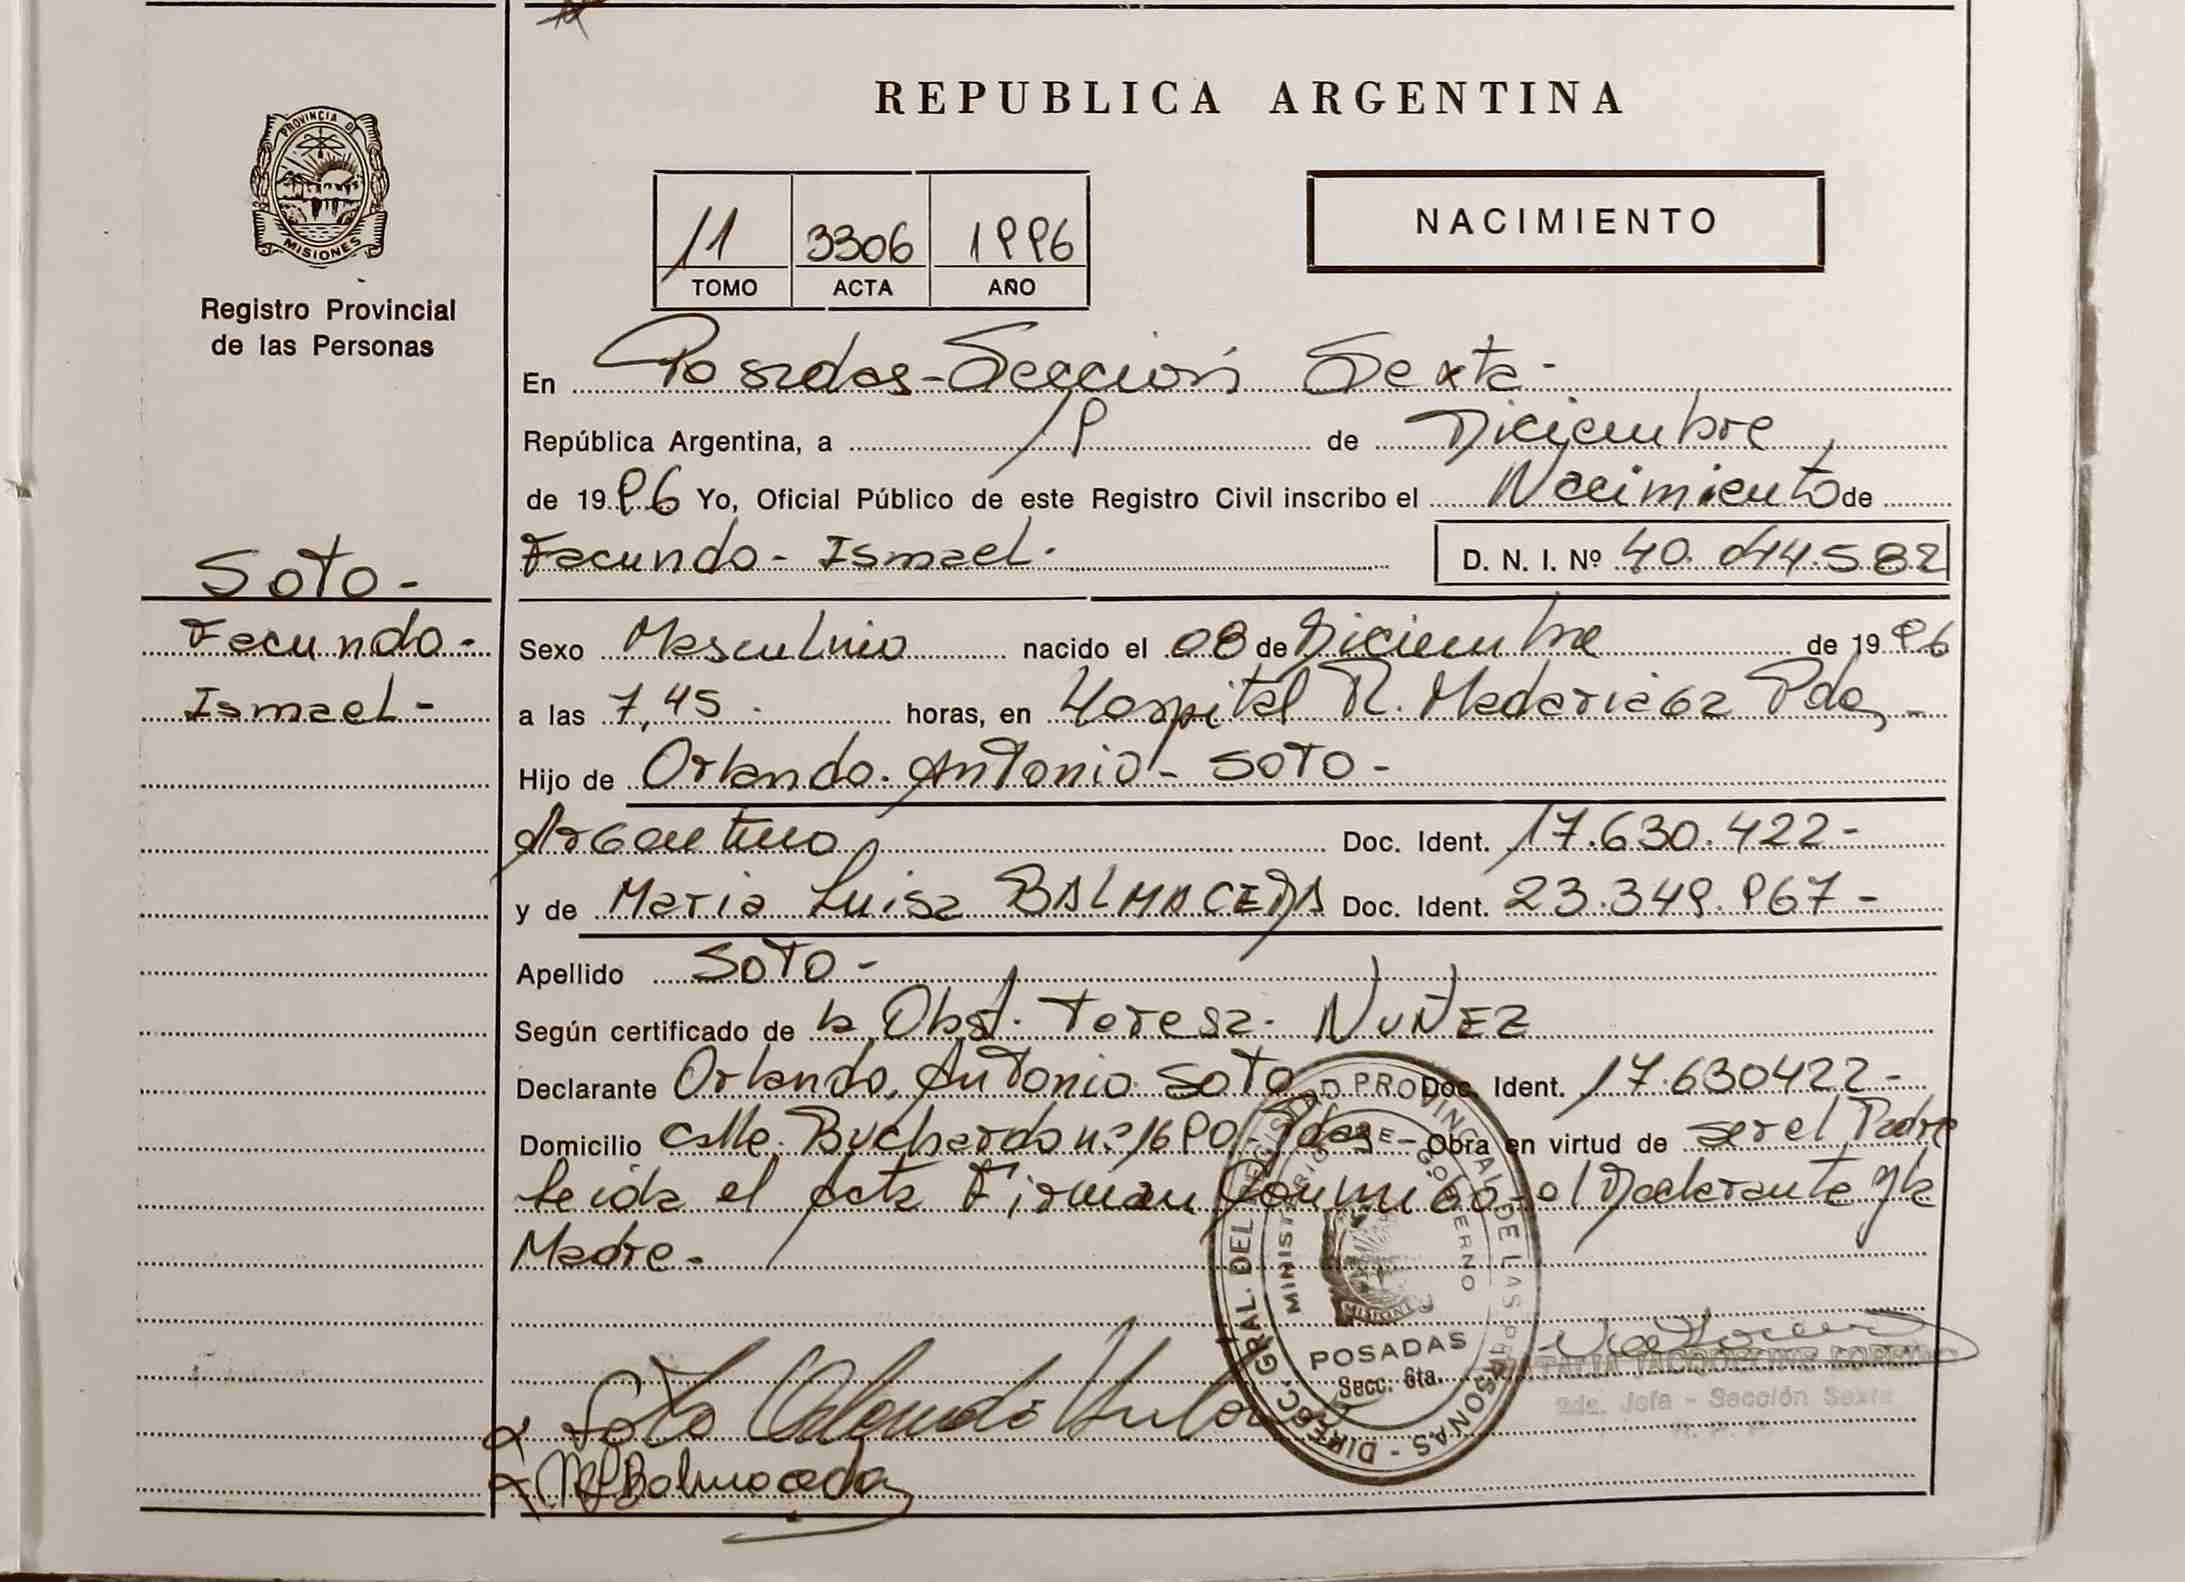 REPUBLICA ARGENTINA
PROVINCIA D
MISIONES
Registro Provincial
de las Personas
11 3306 1996
TOMO ACTA AÑO
NACIMIENTO
En Posadas-Sección Sexta-
República Argentina, a 19 de Diciembre
de 1996 Yo, Oficial Público de este Registro Civil inscribo el Nacimiento de
Facundo- Ismael. D. N. I. Nº 40.044.582
Soto-
Facundo-
Ismael-
Sexo Masculino nacido el 08 de Diciembre de 1996
a las 7,45 horas, en Hospital R. Madariaga Pdas-
Hijo de Orlando. Antonio- SOTO-
Argentino Doc. Ident. 17.630.422-
y de Maria Luisa BALMACEDA Doc. Ident. 23.349.967-
Apellido SOTO-
Según certificado de la Obst. Teresa- NUÑEZ
Declarante Orlando, Antonio SOTO Doc. Ident. 17.630422-
Domicilio calle. Buchardo nº 1690- Pdas- Obra en virtud de ser el Padre
leida el acta Firman Conmigo el Declarante y la
Madre-
DIRECC. GRAL. DEL REGISTRO PROVINCIAL DE LAS PERSONAS
MINISTERIO DE GOBIERNO
MISIONES
POSADAS
Secc. 6ta.
Soto Orlando Anto
ML Balmaceda
2da. Jefa - Sección Sexta